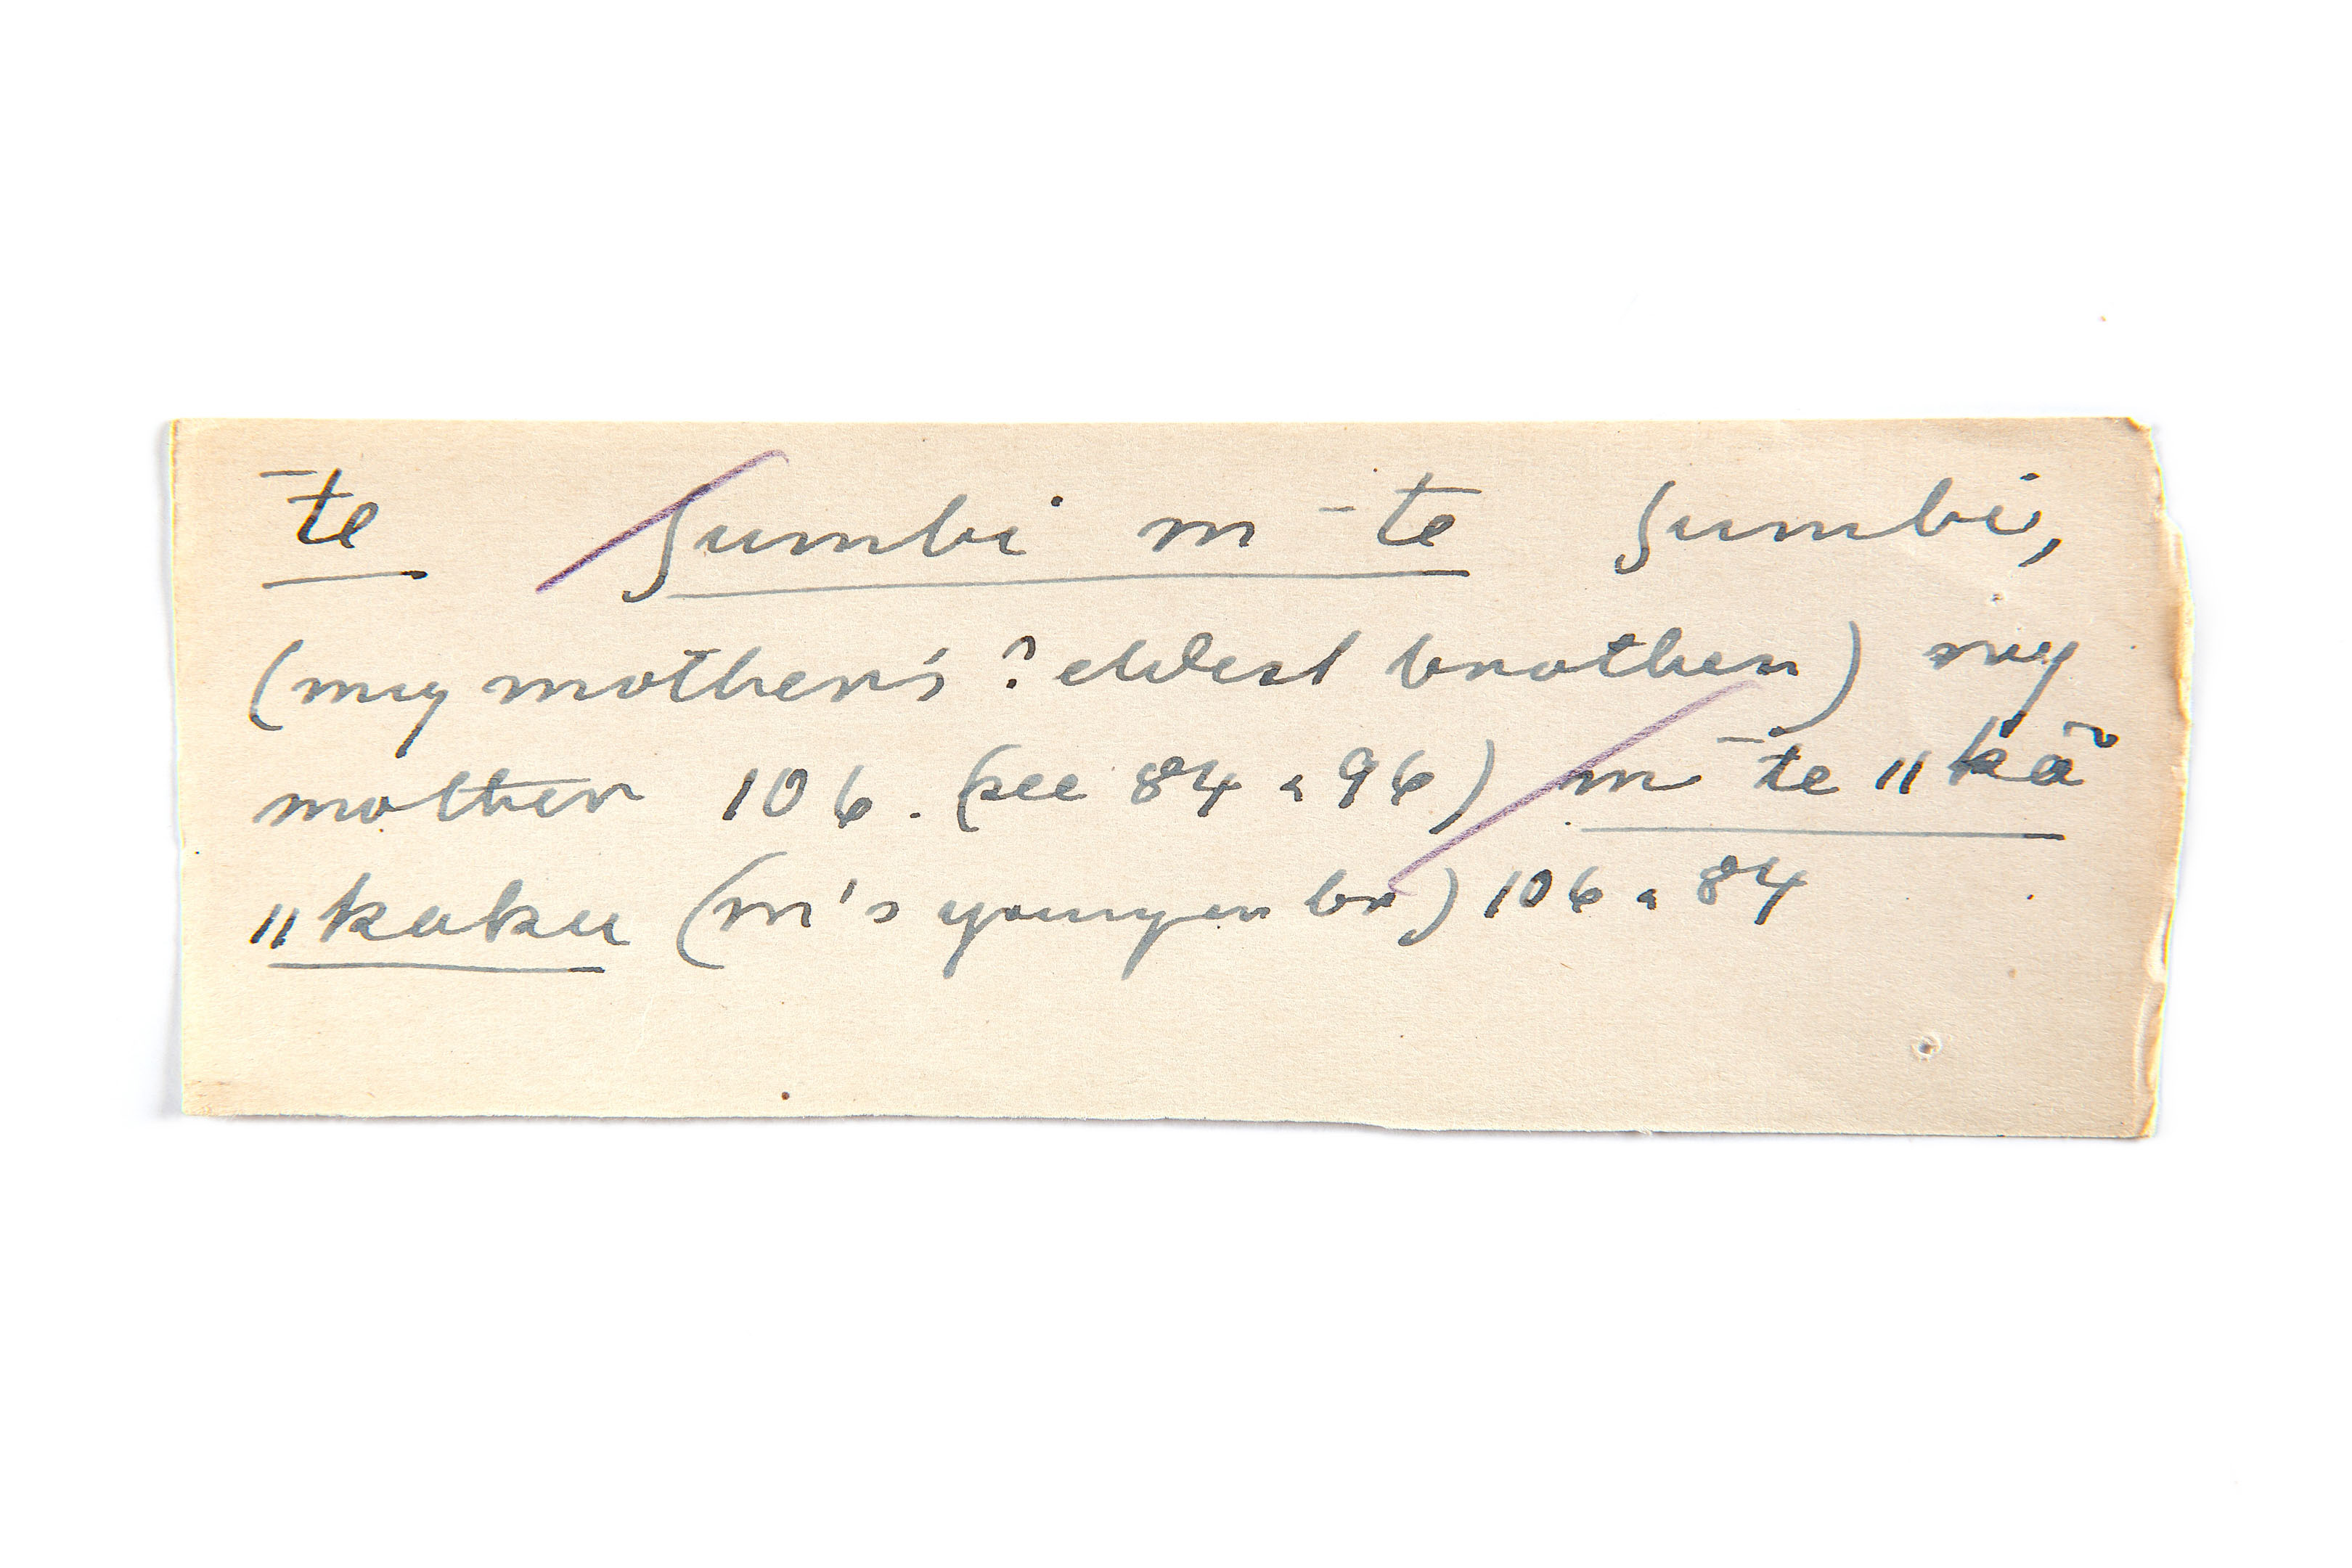 ¯te ʃumbi m ¯te ʃumbi,
(my mother's ? eldest brother) my
mother 106. (see 84 & 96) m ¯te ǁkã
ǁkaku (m's younger br) 106 & 84